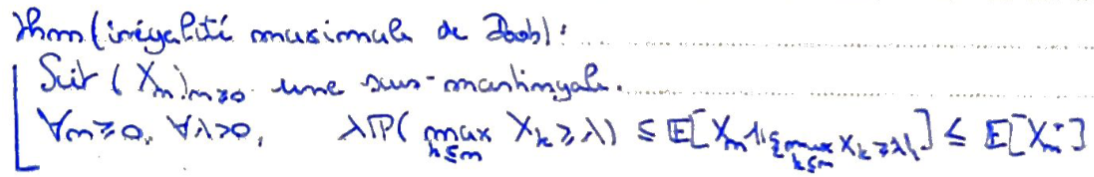 Thm (inégalité maximale de Doob) :
Soit (X_n)_{n≥0} une sous-martingale.
∀n≥0, ∀λ>0, λℙ(max_{k≤n} X_k ≥ λ) ≤ 𝔼[X_n 𝟙_{{max_{k≤n} X_k ≥ λ}}] ≤ 𝔼[X_n^+]